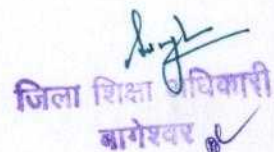 जिला शिक्षा अधिकारी
बागेश्वर